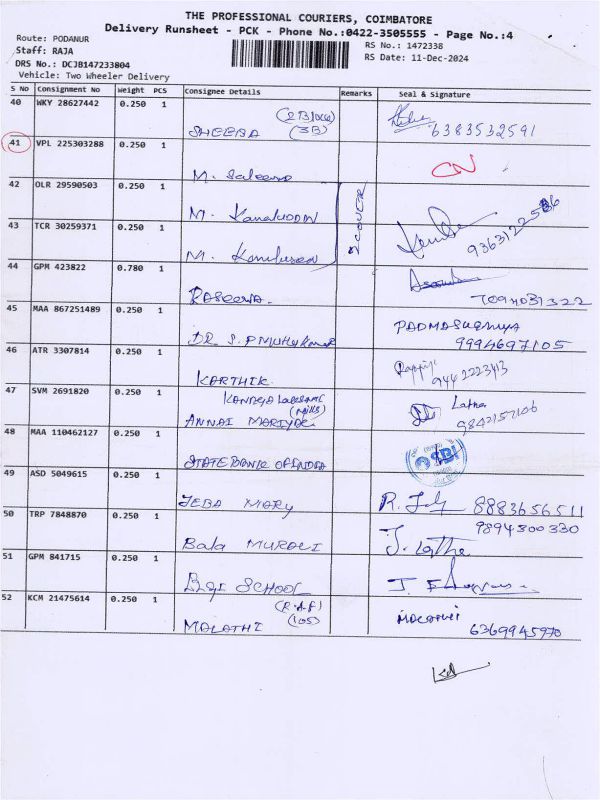 THE PROFESSIONAL COURIERS, COIMBATORE
Delivery Runsheet - PCK - Phone No.:0422-3505555 - Page No.:4
Route: PODANUR
Staff: RAJA
RS No.: 1472338
DRS No.: DCJB147233804
RS Date: 11-Dec-2024
Vehicle: Two Wheeler Delivery
S No Consignment No Weight PCS Consignee Details Remarks Seal & Signature
40 WKY 28627442 0.250 1 SHEEBA (3B) 6383532591
41 VPL 225303288 0.250 1 M. Saleena CN
42 OLR 29590503 0.250 1 M.
2 COVER
43 TCR 30259371 0.250 1 M.
44 GPM 423822 0.780 1 RASEENA. 7094031322
45 MAA 867251489 0.250 1 DR S. P MUTHUKUMAR 9994697105
46 ATR 3307814 0.250 1 KARTHIK 9442223413
47 SVM 2691820 0.250 1 ANNAI Latha 9842157106
48 MAA 110462127 0.250 1 STATE BANK OF INDIA SBI
49 ASD 5049615 0.250 1 JEBA MARY 8883656511
50 TRP 7848870 0.250 1 Bala MURALI J. Latha 9894300330
51 GPM 841715 0.250 1 SCHOOL
52 KCM 21475614 0.250 1 MALATHI (105) MALATHI 6369945970